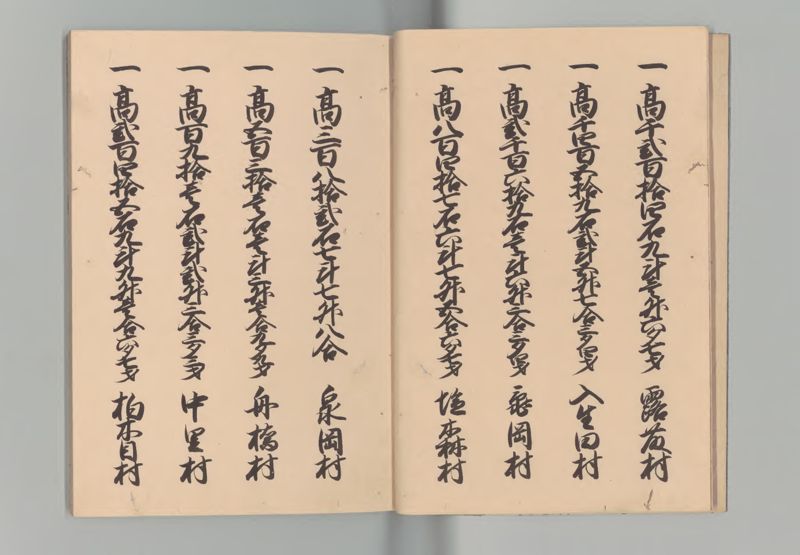 一 高千弐百拾四石九斗壱升六夕七才 露茂村
一 高千四百五拾九石弐斗五升七合三夕四才 入生田村
一 高弐千百六拾九石壱斗四升二合三夕四才 岡村
一 高八百四拾七石六斗七升五合六夕七才 塩森村
一 高三百八拾弐石七斗七升八合 泉岡村
一 高五百三拾壱石壱斗三升壱合九夕九才 舟橋村
一 高百九拾壱石弐斗弐升二合三夕三才 中里村
一 高弐百四拾五石九斗九升壱合六夕七才 柏木目村